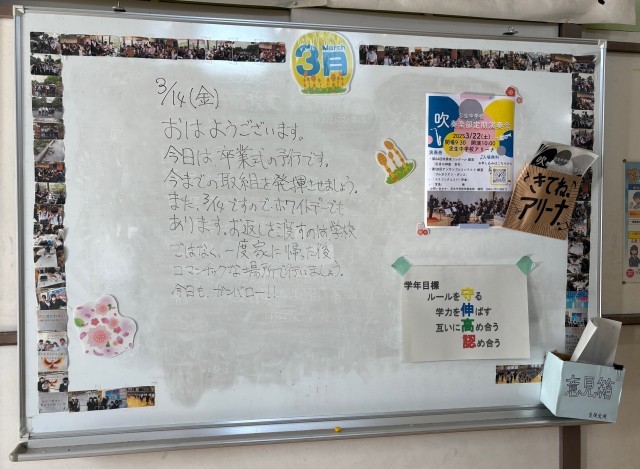 3/14(金)
おはようございます。
今日は卒業式の予行です。
今までの取組を発揮させましょう。
また、3/14ですのでホワイトデーでも
あります。お返しを渡すのは学校
ではなく、一度家に帰った後
ロマンチックな場所で行いましょう。
今日も、ガンバロー!!
March
3月
吹
奏楽部定期演奏会
2025 3/22(土)
開場9:30 開演10:00
吹
きてね、
アリーナ
学年目標
ルールを守る
学力を伸ばす
互いに高め合う
認め合う
意見箱